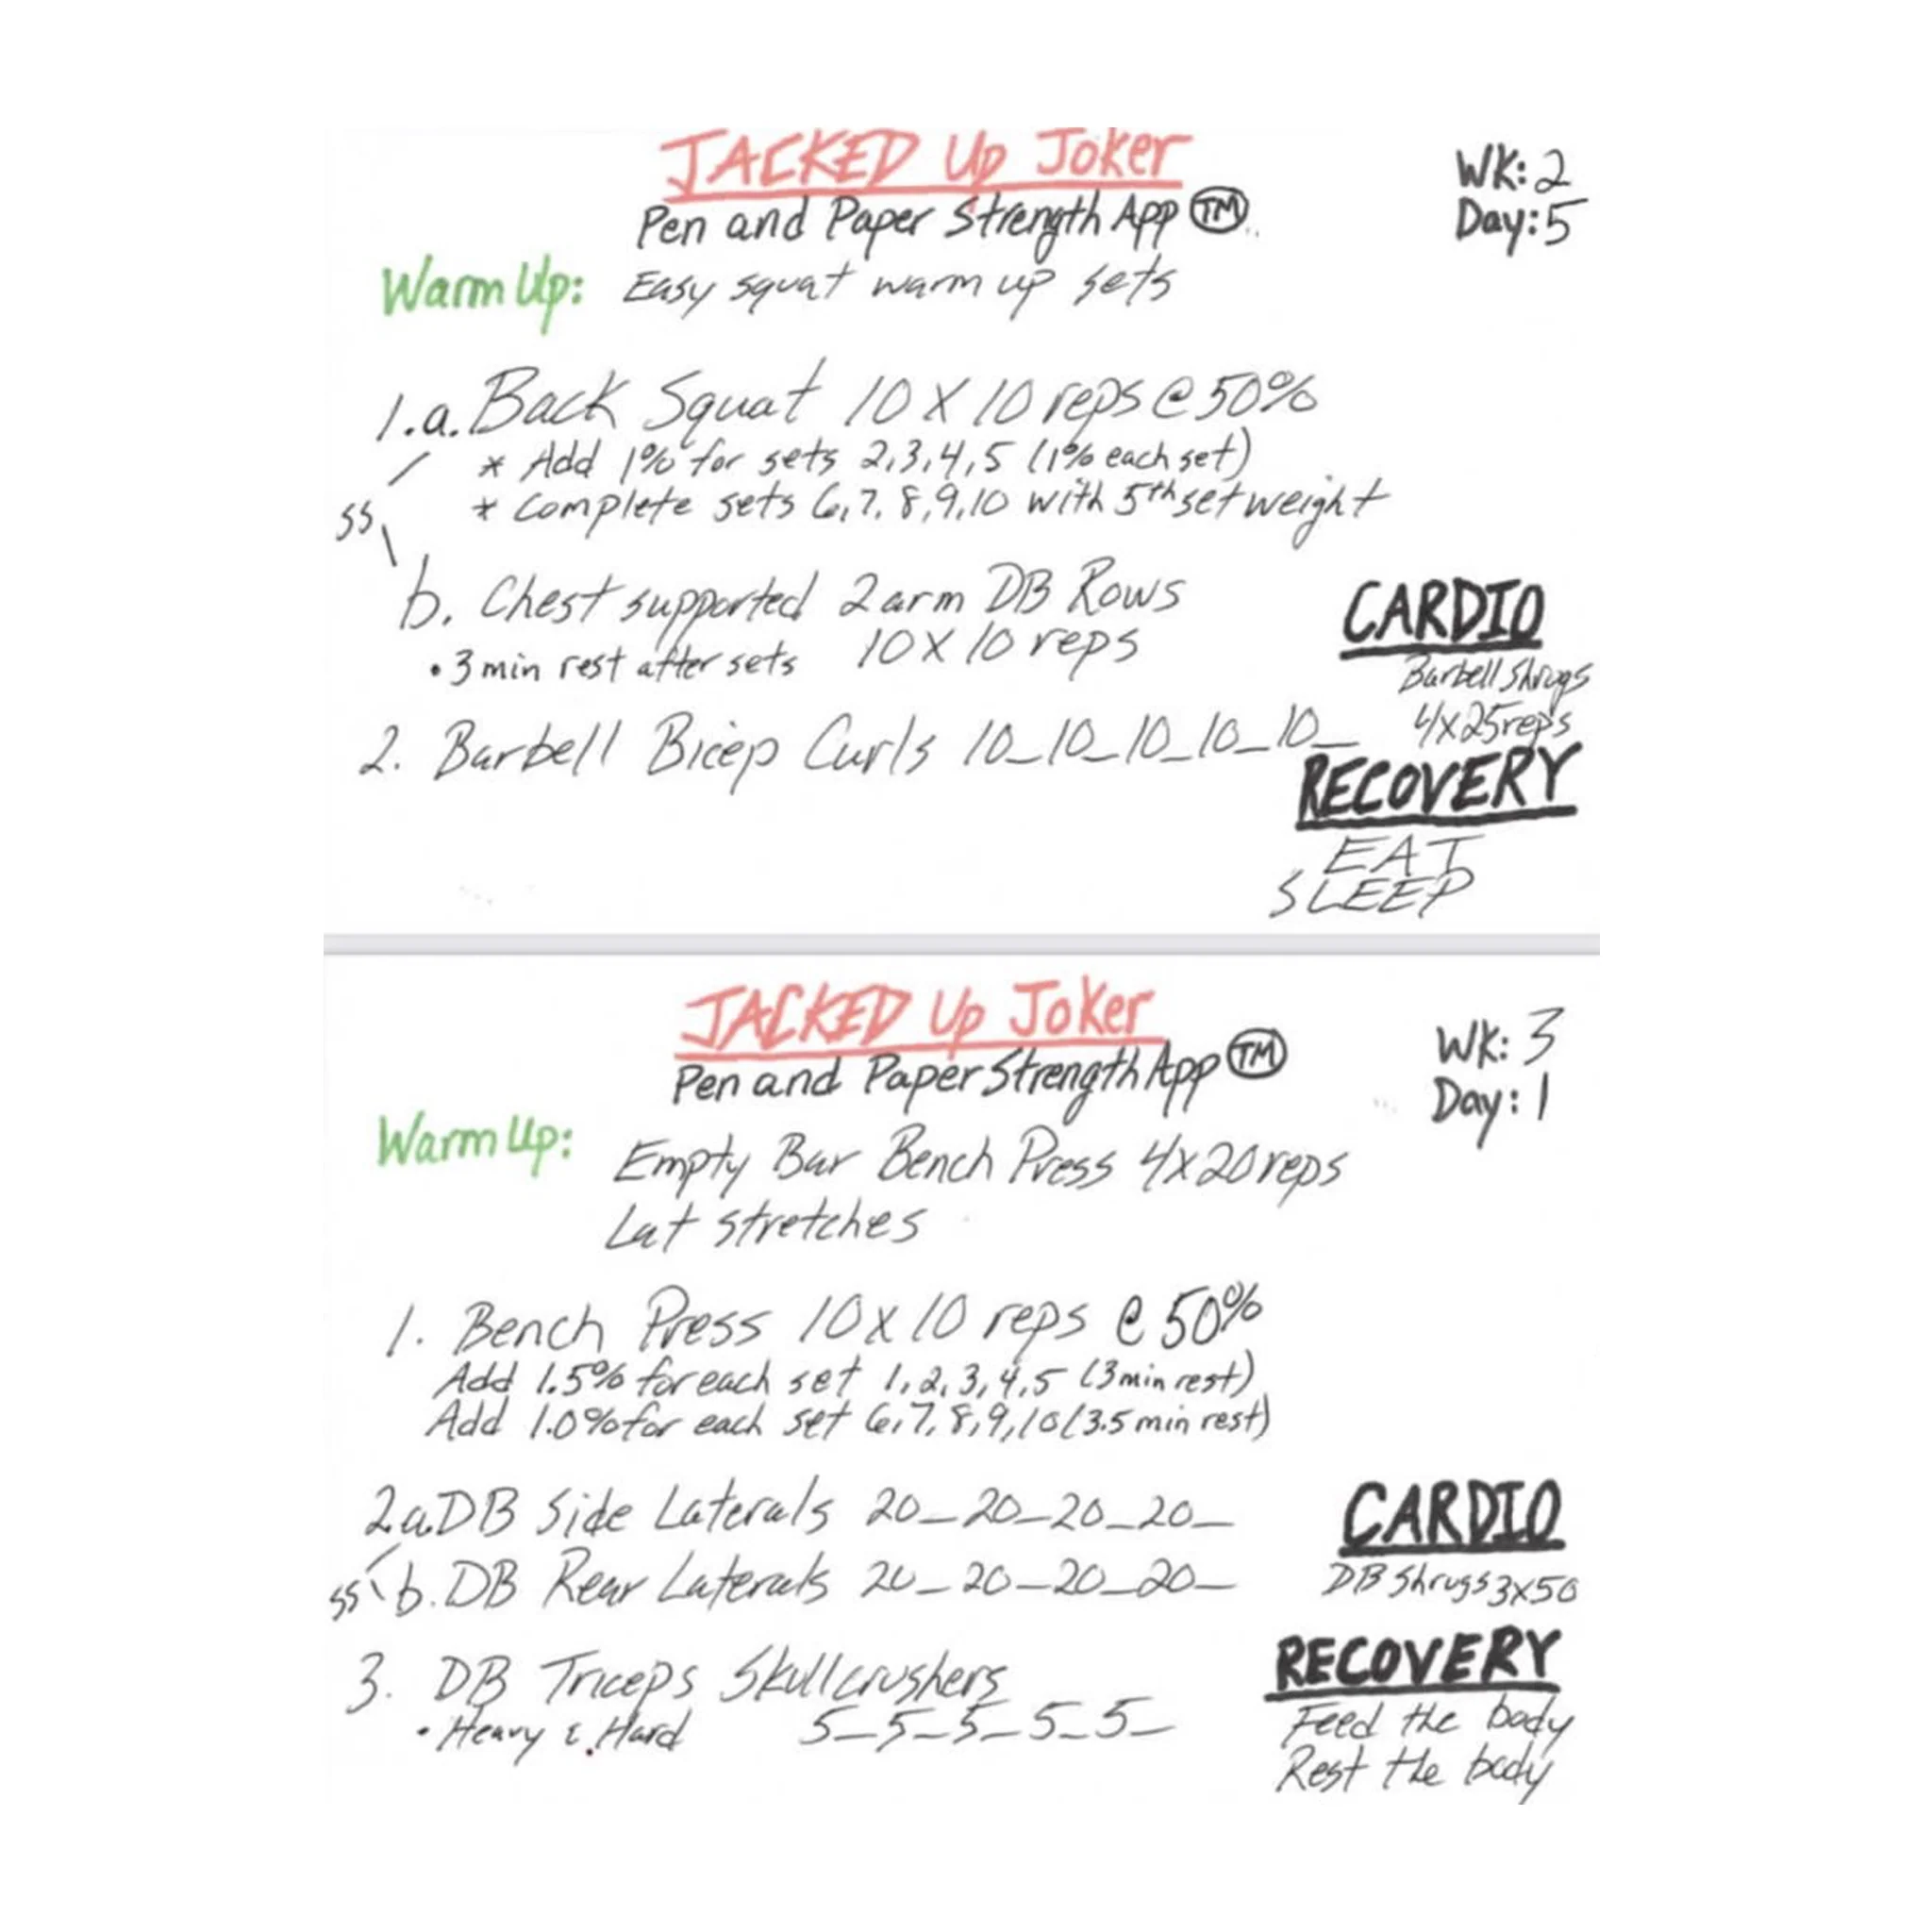 JACKED Up Joker
WK: 2
Pen and Paper Strength App TM
Day: 5
Warm Up: Easy squat warm up sets
1.a. Back Squat 10 X 10 reps @ 50%
* Add 1% for sets 2,3,4,5 (1% each set)
* Complete sets 6,7,8,9,10 with 5th set weight
SS
b. Chest supported 2 arm DB Rows
• 3 min rest after sets 10 X 10 reps
2. Barbell Bicep Curls 10_10_10_10_10_
CARDIO
Barbell Shrugs
4x25 reps
RECOVERY
EAT
SLEEP
JACKED Up Joker
WK: 3
Pen and Paper Strength App TM
Day: 1
Warm Up: Empty Bar Bench Press 4x20 reps
Lat stretches
1. Bench Press 10 x 10 reps @ 50%
Add 1.5% for each set 1,2,3,4,5 (3 min rest)
Add 1.0% for each set 6,7,8,9,10 (3.5 min rest)
2.a. DB Side Laterals 20_20_20_20_
SS b. DB Rear Laterals 20_20_20_20_
3. DB Triceps Skullcrushers
• Heavy & Hard 5_5_5_5_5_
CARDIO
DB Shrugs 3x50
RECOVERY
Feed the body
Rest the body